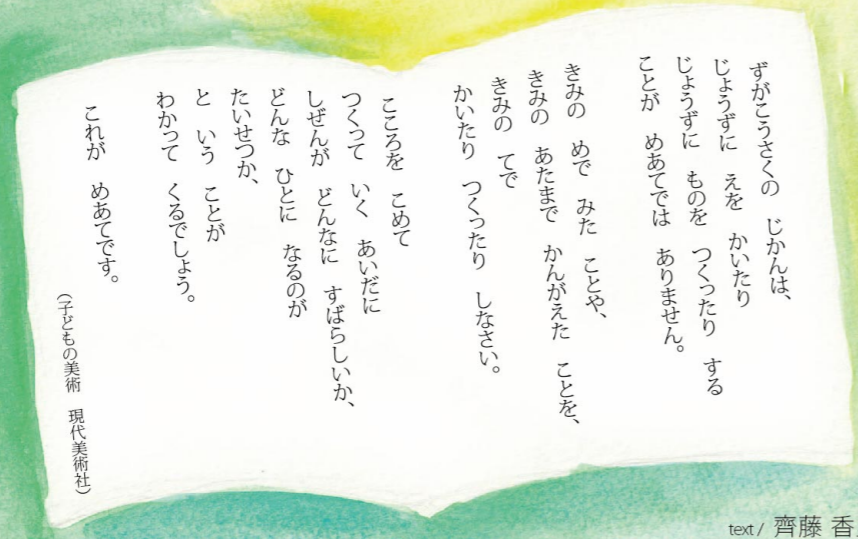 ずがこうさくの　じかんは、
じょうずに　えを　かいたり
じょうずに　ものを　つくったり　する
ことが　めあてでは　ありません。
きみの　めで　みた　ことや、
きみの　あたまで　かんがえた　ことを、
きみの　てで
かいたり　つくったり　しなさい。
こころを　こめて
つくって　いく　あいだに
しぜんが　どんなに　すばらしいか、
どんな　ひとに　なるのが
たいせつか、
と　いう　ことが
わかって　くるでしょう。
これが　めあてです。
（子どもの美術　現代美術社）
text / 齊藤 香